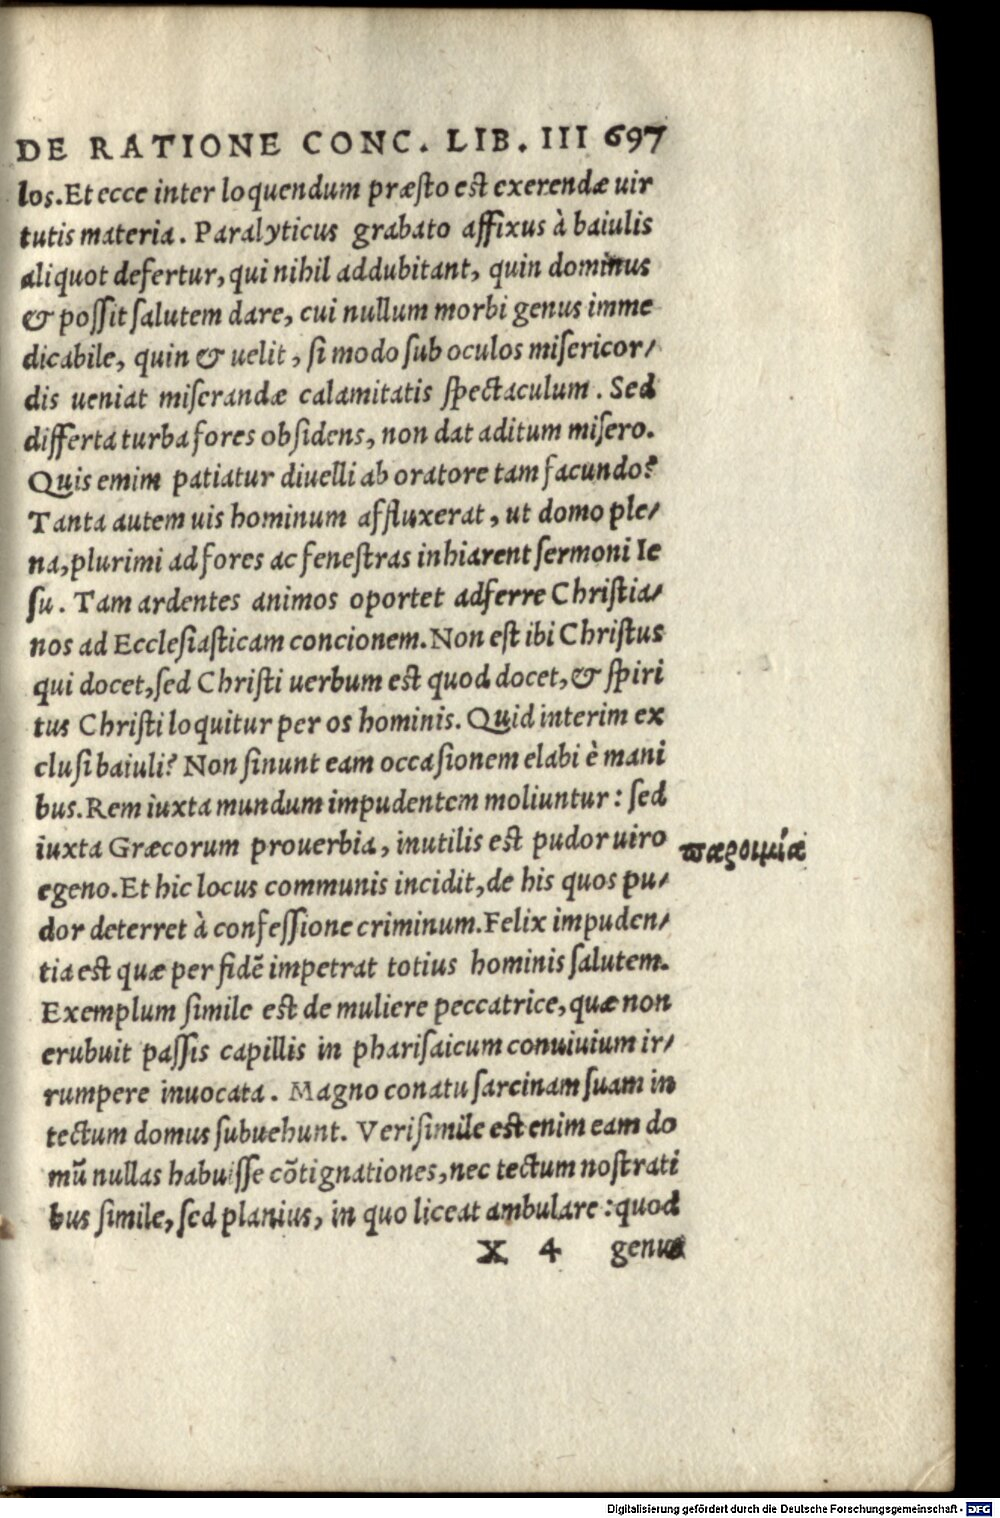 DE RATIONE CONC. LIB. III 697
los. Et ecce inter loquendum præsto est exerendæ uir
tutis materia. Paralyticus grabato affixus à baiulis
aliquot defertur, qui nihil addubitant, quin dominus
& possit salutem dare, cui nullum morbi genus imme
dicabile, quin & uelit, si modo sub oculos misericor/
dis ueniat miserandæ calamitatis spectaculum. Sed
differta turba fores obsidens, non dat aditum misero.
Quis emim patiatur diuelli ab oratore tam facundo?
Tanta autem uis hominum affluxerat, ut domo ple/
na, plurimi ad fores ac fenestras inhiarent sermoni Ie
su. Tam ardentes animos oportet adferre Christia/
nos ad Ecclesiasticam concionem. Non est ibi Christus
qui docet, sed Christi uerbum est quod docet, & spiri
tus Christi loquitur per os hominis. Quid interim ex
clusi baiuli? Non sinunt eam occasionem elabi è mani
bus. Rem iuxta mundum impudentem moliuntur: sed
iuxta Græcorum prouerbia, inutilis est pudor uiro
παροιμία
egeno. Et hic locus communis incidit, de his quos pu/
dor deterret à confessione criminum. Felix impuden/
tia est quæ per fidē impetrat totius hominis salutem.
Exemplum simile est de muliere peccatrice, quæ non
erubuit passis capillis in pharisaicum conuiuium ir/
rumpere inuocata. Magno conatu sarcinam suam in
tectum domus subuehunt. Verisimile est enim eam do
mū nullas habuisse cōtignationes, nec tectum nostrati
bus simile, sed planius, in quo liceat ambulare: quod
X 4 genus
Digitalisierung gefördert durch die Deutsche Forschungsgemeinschaft - DFG